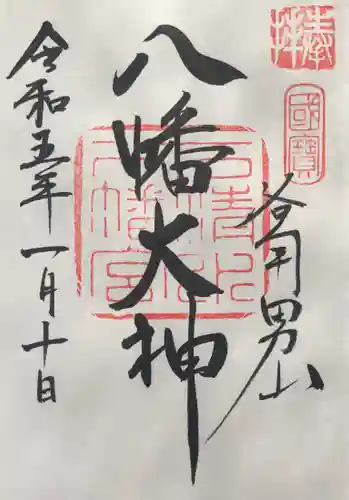 奉拝
國寶
参男山
八幡大神
石清水八幡宮
令和五年一月十日